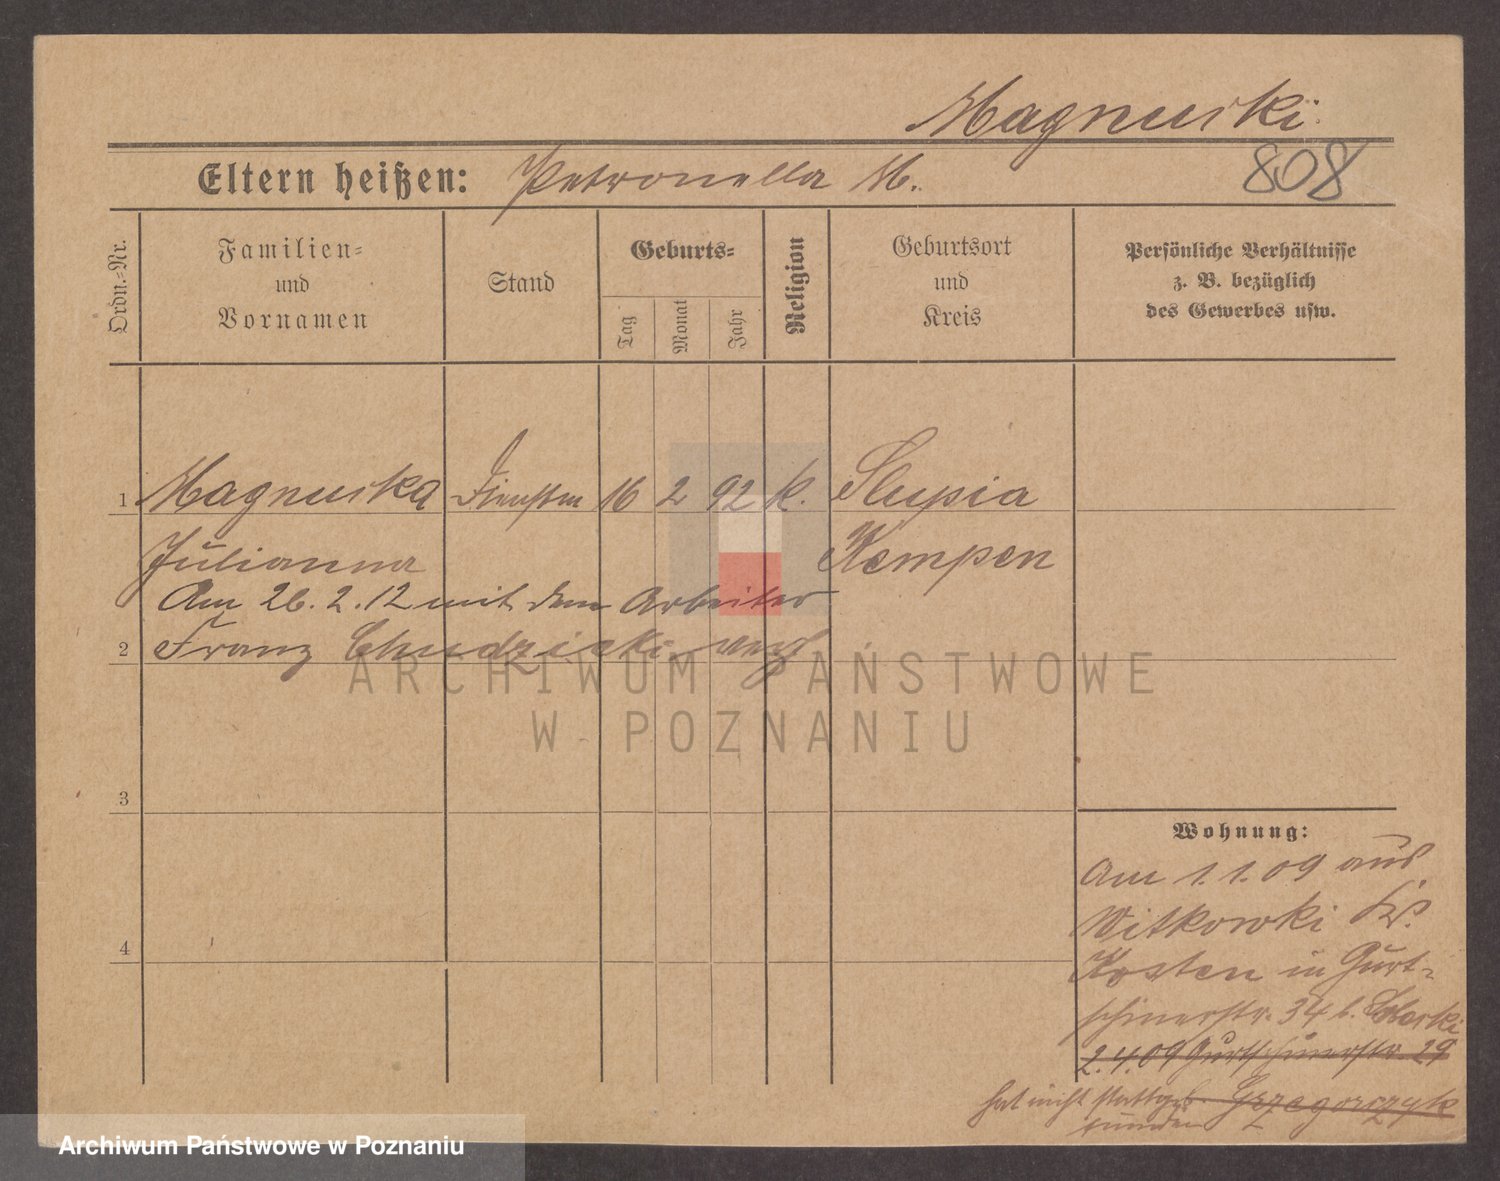 Magnuski
808
Eltern heißen: Petronella M.
Ordn.-Nr.
Familien-
und
Vornamen
Stand
Geburts-
Tag
Monat
Jahr
Religion
Geburtsort
und
Kreis
Persönliche Verhältnisse
z. B. bezüglich
des Gewerbes usw.
1 Magnuska Dienstm 16 2 92 k. Slupia
Julianna Kempen
Am 26. 2. 12 mit dem Arbeiter
2 Franz Chudzicki verh
3
4
Wohnung:
Am 1. 1. 09 aus
Witkowki Kr.
Kosten in Gurt-
schinerstr. 34 b.
2. 4. 09 Gurtschinerstr. 29
hat nicht stattge- Grzegorczyk
funden
ARCHIWUM PAŃSTWOWE
W POZNANIU
Archiwum Państwowe w Poznaniu